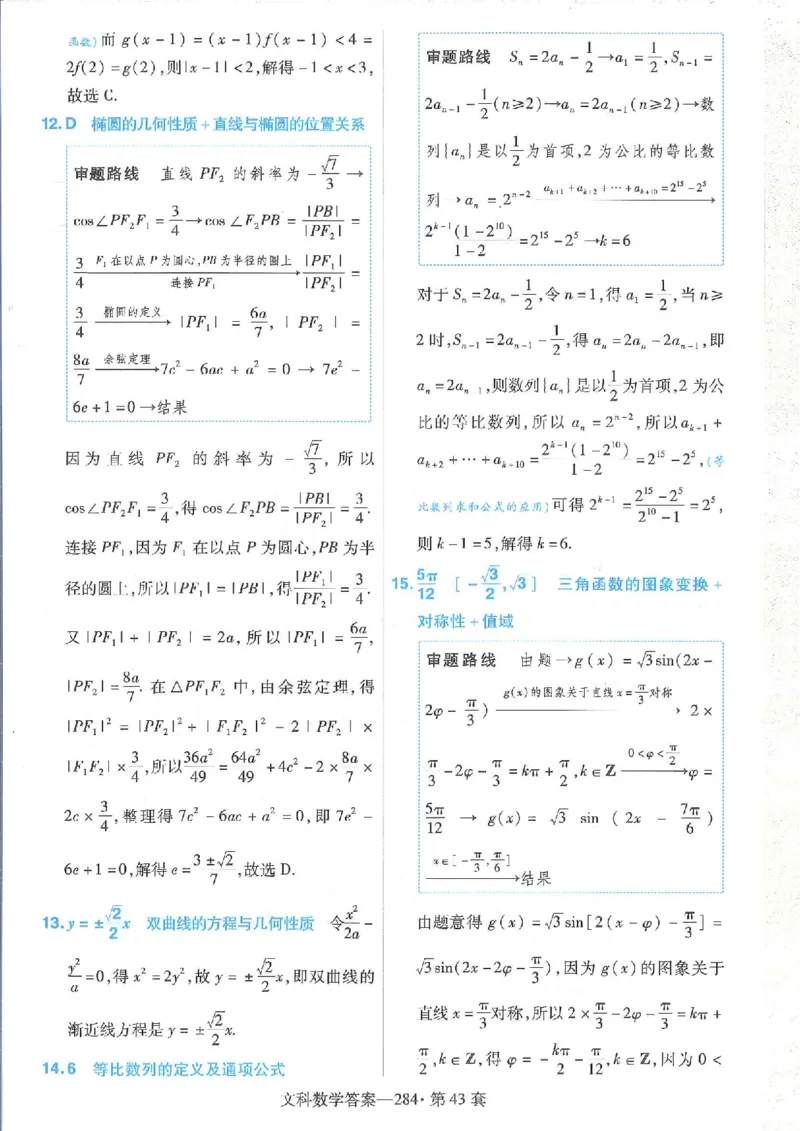 函数)而 g(x − 1) = (x − 1)f(x − 1) < 4 =
2f(2) = g(2),则|x − 1| < 2,解得 −1 < x < 3,
故选 C.
12.D 椭圆的几何性质 + 直线与椭圆的位置关系
审题路线 直线 PF₂ 的斜率为 −√7/3 →
cos∠PF₂F₁ = 3/4 → cos∠F₂PB = |PB|/|PF₂| =
3/4 —F₁在以点P为圆心,PB为半径的圆上 连接PF₁→ |PF₁|/|PF₂| =
3/4 —椭圆的定义→ |PF₁| = 6a/7, |PF₂| =
8a/7 —余弦定理→ 7c² − 6ac + a² = 0 → 7e² −
6e + 1 = 0 → 结果
因为直线 PF₂ 的斜率为 −√7/3, 所以
cos∠PF₂F₁ = 3/4,得 cos∠F₂PB = |PB|/|PF₂| = 3/4.
连接 PF₁,因为 F₁ 在以点 P 为圆心,PB 为半
径的圆上,所以|PF₁| = |PB|,得|PF₁|/|PF₂| = 3/4.
又|PF₁| + |PF₂| = 2a,所以|PF₁| = 6a/7,
|PF₂| = 8a/7. 在△PF₁F₂ 中,由余弦定理,得
|PF₁|² = |PF₂|² + |F₁F₂|² − 2|PF₂| ×
|F₁F₂| × 3/4,所以36a²/49 = 64a²/49 + 4c² − 2 × 8a/7 ×
2c × 3/4,整理得 7c² − 6ac + a² = 0,即 7e² −
6e + 1 = 0,解得 e = (3 ± √2)/7,故选 D.
13.y = ±√2/2 x 双曲线的方程与几何性质 令x²/2a −
y²/a = 0,得 x² = 2y²,故 y = ±√2/2 x,即双曲线的
渐近线方程是 y = ±√2/2 x.
14.6 等比数列的定义及通项公式
审题路线 Sₙ = 2aₙ − 1/2 → a₁ = 1/2,Sₙ₋₁ =
2aₙ₋₁ − 1/2 (n≥2) → aₙ = 2aₙ₋₁(n≥2) → 数
列{aₙ}是以1/2为首项,2 为公比的等比数
列 → aₙ = 2ⁿ⁻² —aₖ₊₁ + aₖ₊₂ + ⋯ + aₖ₊₁₀ = 2¹⁵ − 2⁵→
2ᵏ⁻¹(1 − 2¹⁰)/(1 − 2) = 2¹⁵ − 2⁵ → k = 6
对于 Sₙ = 2aₙ − 1/2,令 n = 1,得 a₁ = 1/2,当 n≥
2 时,Sₙ₋₁ = 2aₙ₋₁ − 1/2,得 aₙ = 2aₙ − 2aₙ₋₁,即
aₙ = 2aₙ₋₁,则数列{aₙ}是以1/2为首项,2 为公
比的等比数列,所以 aₙ = 2ⁿ⁻²,所以aₖ₊₁ +
aₖ₊₂ + ⋯ + aₖ₊₁₀ = 2ᵏ⁻¹(1 − 2¹⁰)/(1 − 2) = 2¹⁵ − 2⁵,(等
比数列求和公式的应用)可得 2ᵏ⁻¹ = (2¹⁵ − 2⁵)/(2¹⁰ − 1) = 2⁵,
则 k − 1 = 5,解得 k = 6.
15.5π/12 [−√3/2,√3] 三角函数的图象变换 +
对称性 + 值域
审题路线 由题 → g(x) = √3sin(2x −
2φ − π/3) —g(x)的图象关于直线x = π/3对称→ 2 ×
π/3 − 2φ − π/3 = kπ + π/2,k∈Z —0<φ<π/2→ φ =
5π/12 → g(x) = √3 sin(2x − 7π/6)
—x∈[−π/3,π/6]→ 结果
由题意得 g(x) = √3sin[2(x − φ) − π/3] =
√3sin(2x − 2φ − π/3),因为 g(x)的图象关于
直线 x = π/3对称,所以 2 × π/3 − 2φ − π/3 = kπ +
π/2,k∈Z,得 φ = −kπ/2 − π/12,k∈Z,因为 0 <
文科数学答案—284·第 43 套